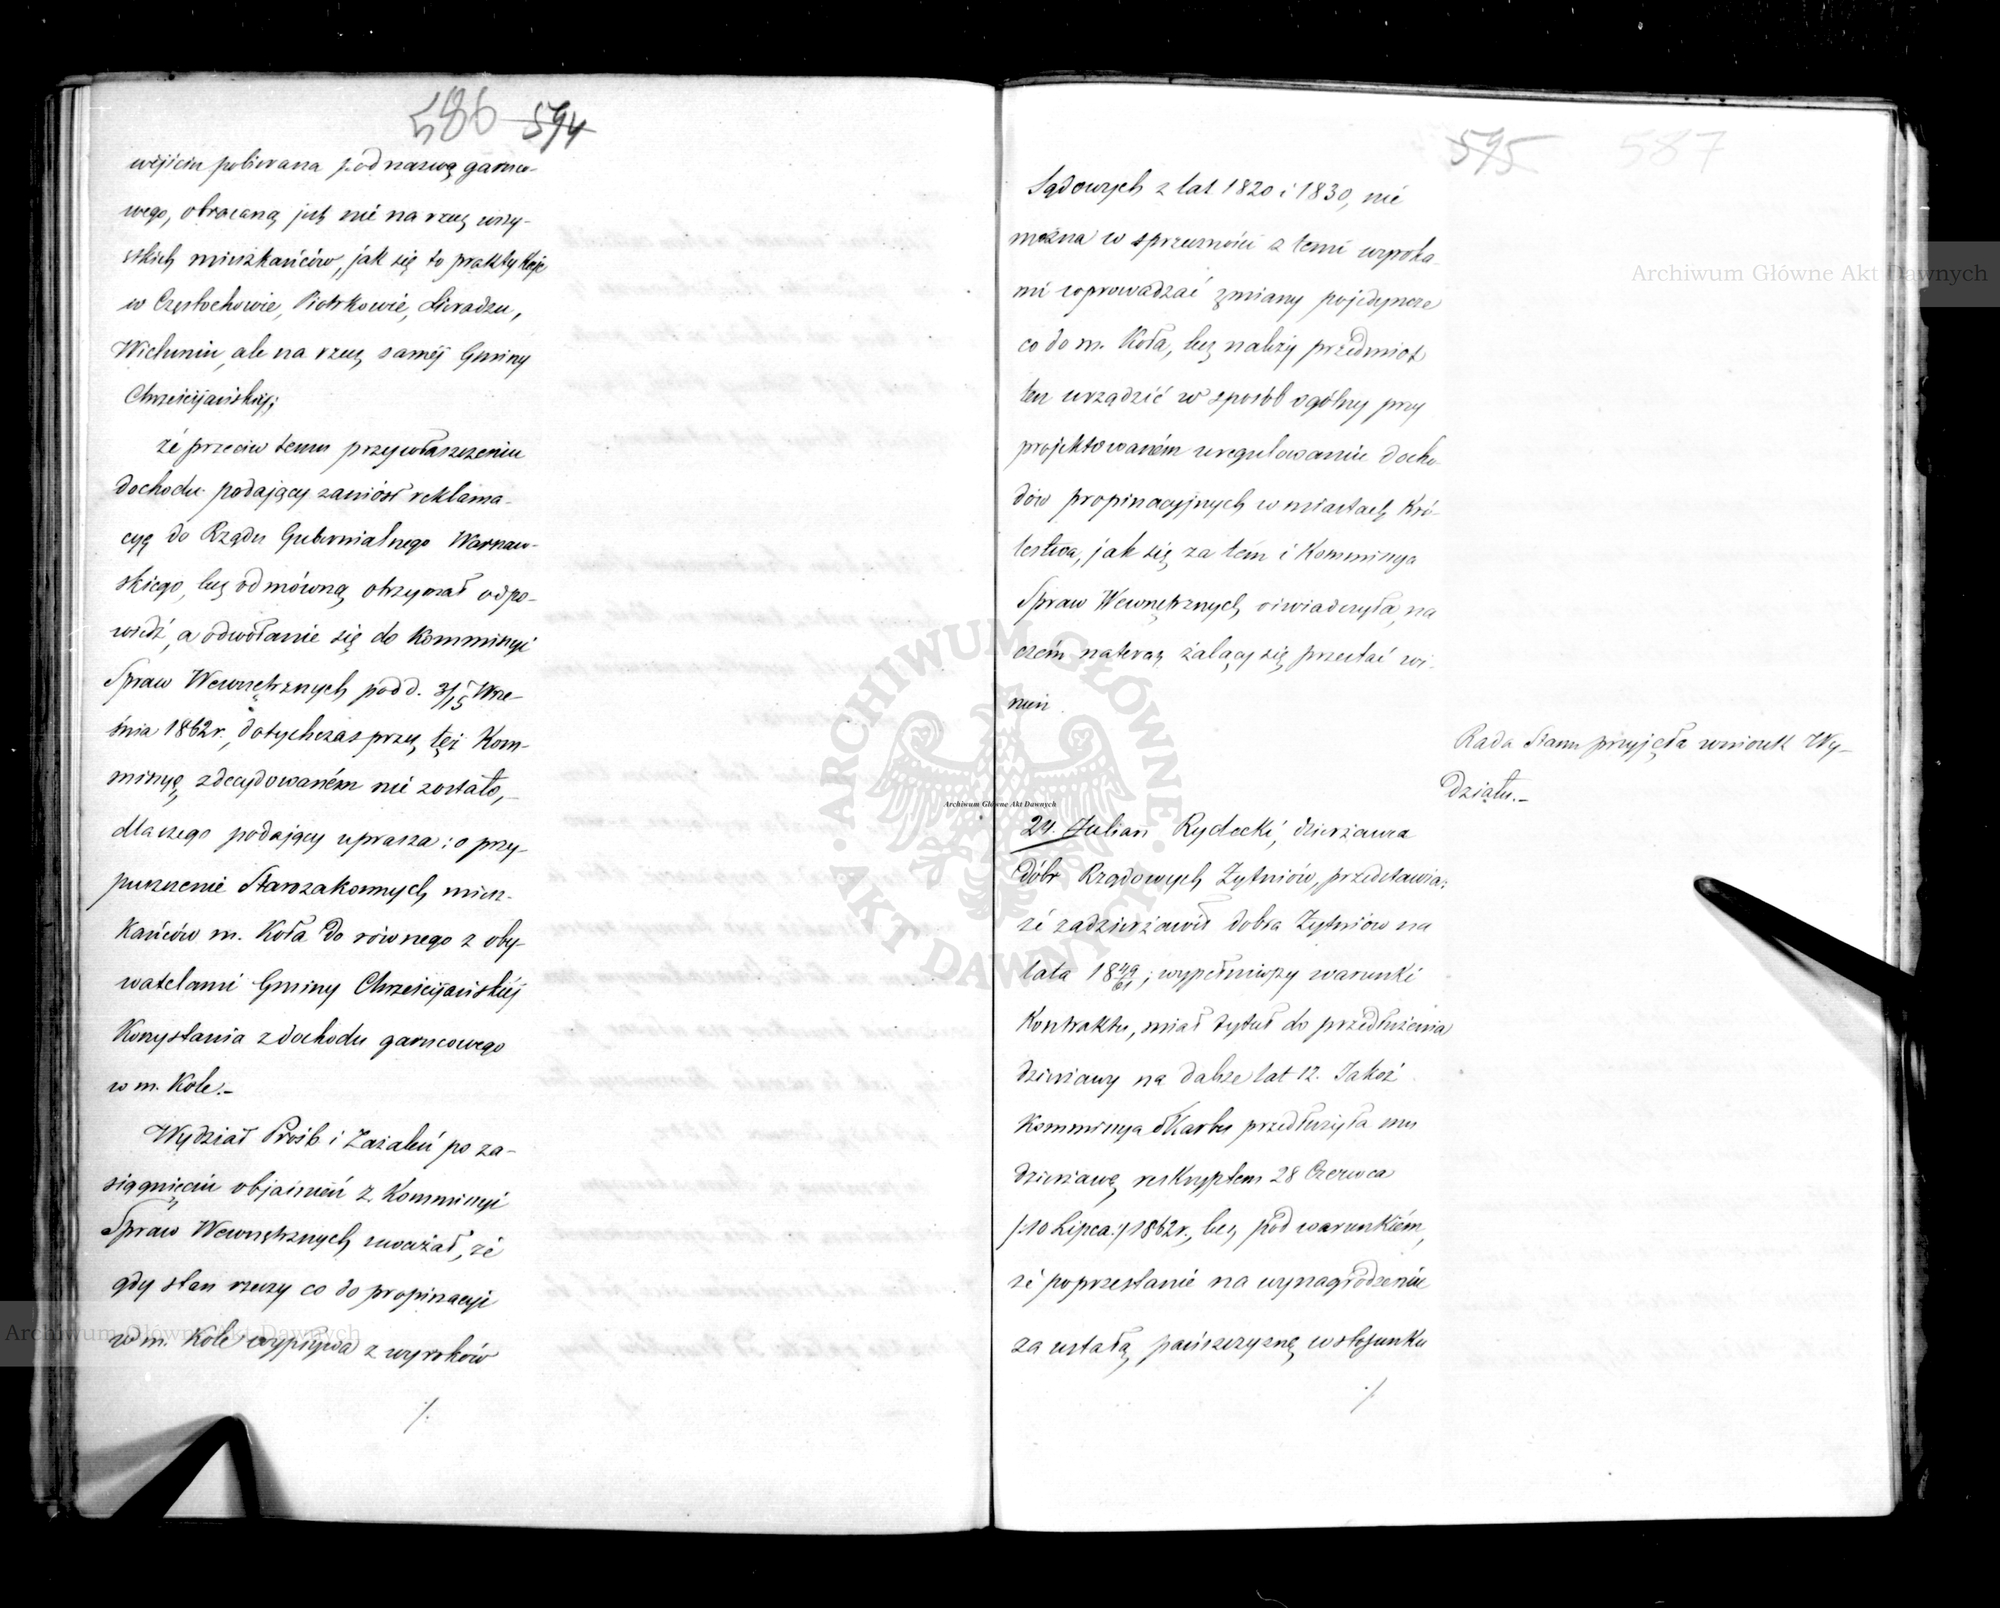 586 594
wójiciu pobierana pod nazwą garnco-
wego, obracaną już nie na rzecz wszy-
stkich mieszkańców, jak się to praktykuje
w Częstochowie, Piotrkowie, Sieradzu,
Wieluniu, ale na rzecz saméj Gminy
Chrześcijańskiéj;
że przeciw temu przywłaszczeniu
dochodu podający zaniósł reklama-
cyę do Rządu Gubernialnego Warszaw-
skiego, lecz odmówną otrzymał odpo-
wiedź, a odwołanie się do Kommissyi
Spraw Wewnętrznych pod d. 3/15 Wrze-
śnia 1862 r., dotychczas przez tęż Kom-
missyę zdecydowaném nie zostało,-
dlaczego podający uprasza: o przy-
puszczenie Starozakonnych miesz-
kańców m. Koła do równego z oby-
watelami Gminy Chrześcijańskiéj
Korzystania z dochodu garncowego
w m. Kole.-
Wydział Próśb i Zażaleń po za-
siągnięciu objaśnień z Kommissyi
Spraw Wewnętrznych uważał, że
gdy stan rzeczy co do propinacyi
w m. Kole wypływa z wyroków
./.
595 587
Sądowych z lat 1820 i 1830, nie
można w sprzeczności z temi wyroka-
mi wprowadzać zmiany pojedyncze
co do m. Koła, lecz należy przedmiot
ten urządzić w sposób ogólny przy
projektowaném uregulowaniu docho-
dów propinacyjnych w miastach Kró-
lestwa, jak się za tém i Kommissya
Spraw Wewnętrznych oświadczyła, na
czém nateraz żalący się przestać wi-
nien.
Rada Stanu przyjęła wniosek Wy-
działu.-
24. Julian Rydecki, dzierżawca
dóbr Rządowych Żytniów, przedstawia:
że zadzierżawił dobra Żytniów na
lata 18 49/61; wypełniwszy warunki
Kontraktu, miał tytuł do przedłużenia
dzierżawy na dalsze lat 12. Jakoż
Kommissya Skarbu przedłużyła mu
dzierżawę reskryptem 28 Czerwca
/:10 Lipca:/ 1862 r., lecz pod warunkiém,
że poprzestanie na wynagrodzeniu
za ustałą pańszczyznę w stosunku
./.
Archiwum Główne Akt Dawnych
Archiwum Główne Akt Dawnych
Archiwum Główne Akt Dawnych
ARCHIWUM GŁÓWNE · AKT DAWNYCH ·